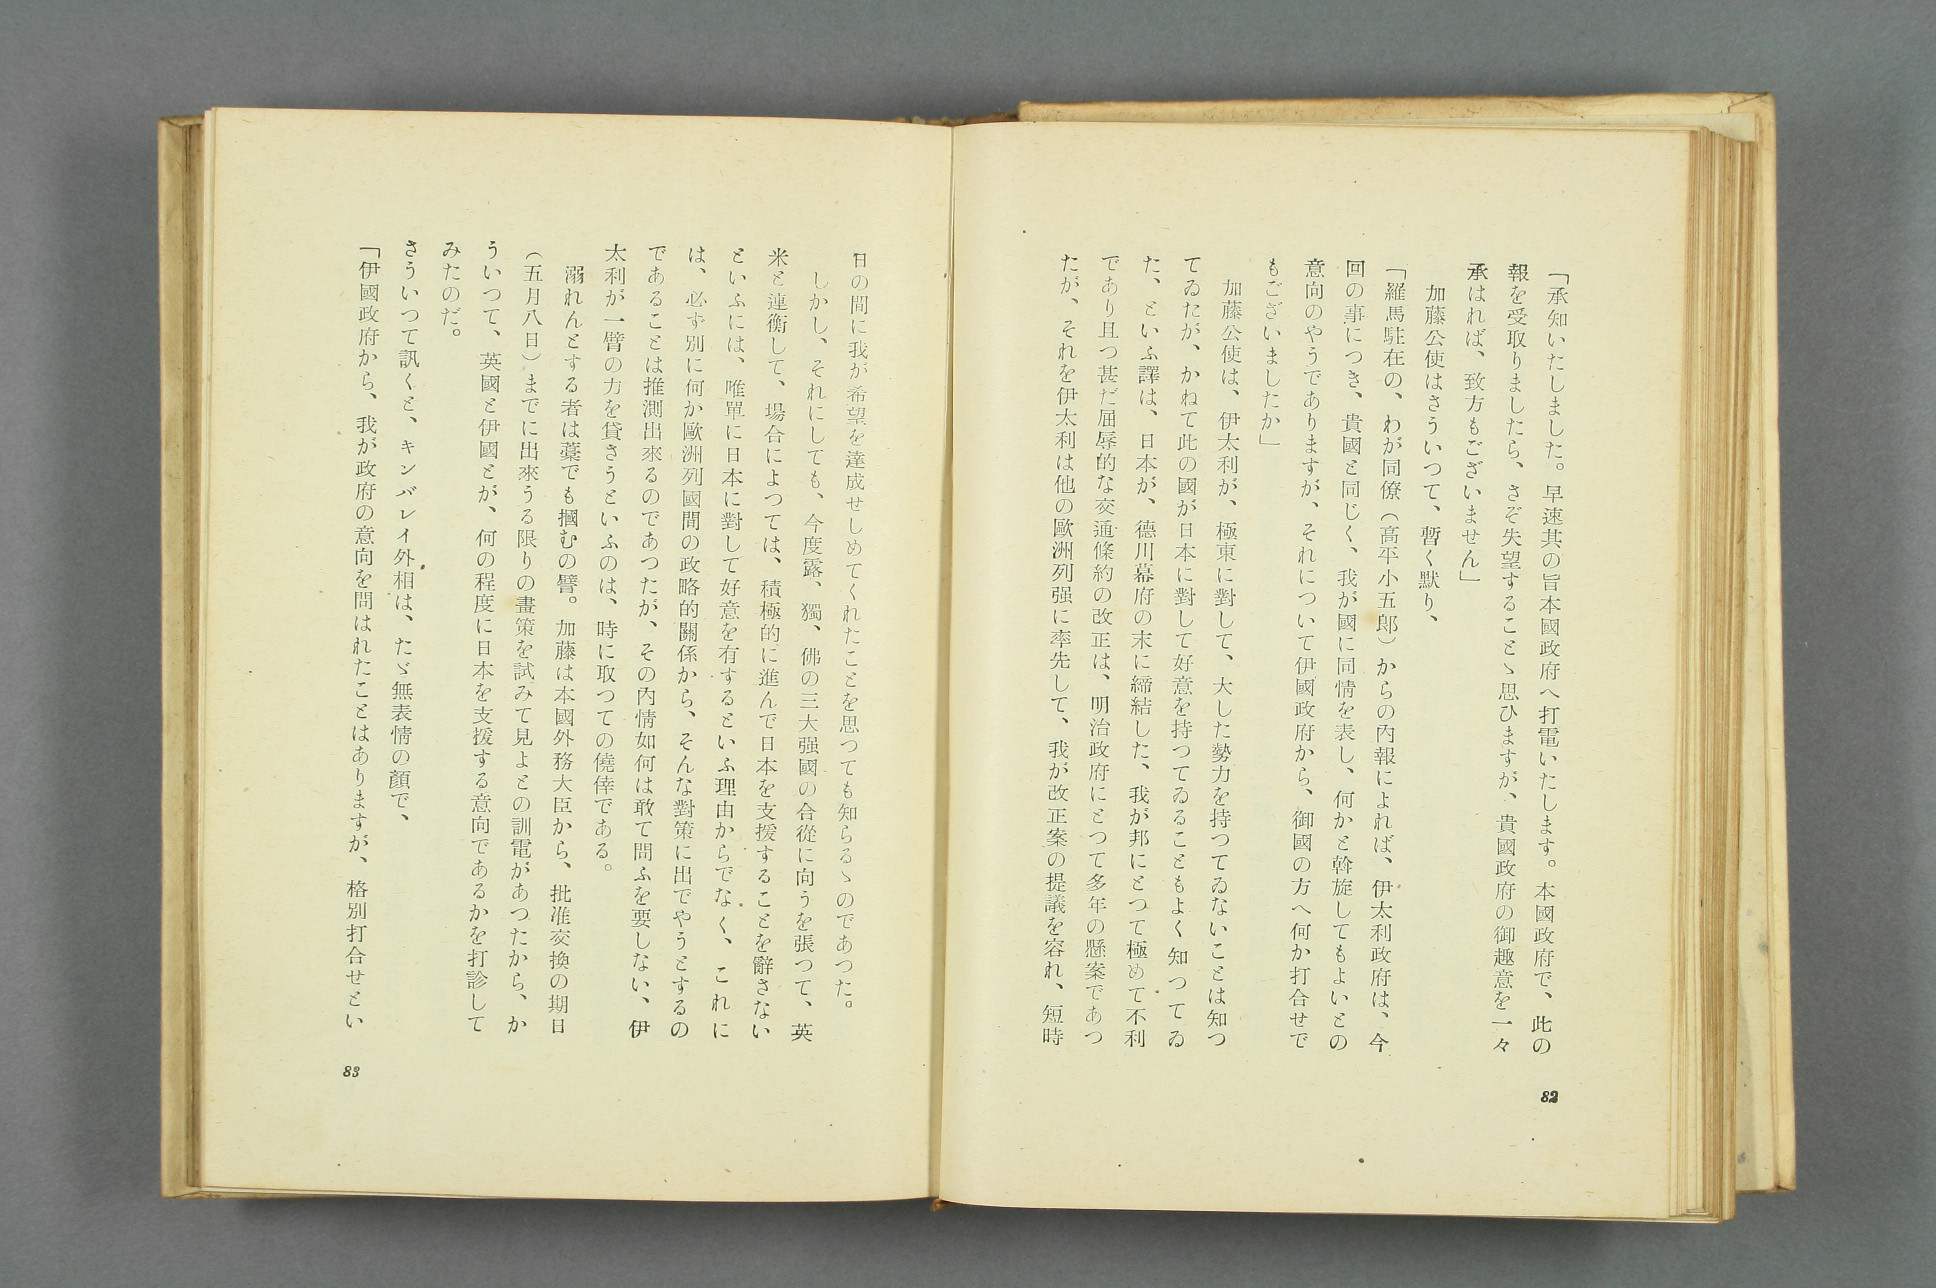 「承知いたしました。早速其の旨本國政府へ打電いたします。本國政府で、此の
報を受取りましたら、さぞ失望することゝ思ひますが、貴國政府の御趣意を一々
承はれば、致方もございません」
加藤公使はさういつて、暫く默り、
「羅馬駐在の、わが同僚（高平小五郎）からの內報によれば、伊太利政府は、今
回の事につき、貴國と同じく、我が國に同情を表し、何かと斡旋してもよいとの
意向のやうでありますが、それについて伊國政府から、御國の方へ何か打合せで
もございましたか」
加藤公使は、伊太利が、極東に對して、大した勢力を持つてゐないことは知つ
てゐたが、かねて此の國が日本に對して好意を持つてゐることもよく知つてゐ
た、といふ譯は、日本が、德川幕府の末に締結した、我が邦にとつて極めて不利
であり且つ甚だ屈辱的な交通條約の改正は、明治政府にとつて多年の懸案であつ
たが、それを伊太利は他の歐洲列强に率先して、我が改正案の提議を容れ、短時
82
日の間に我が希望を達成せしめてくれたことを思つても知らるゝのであつた。
しかし、それにしても、今度露、獨、佛の三大强國の合從に向うを張つて、英
米と連衡して、場合によつては、積極的に進んで日本を支援することを辭さない
といふには、唯單に日本に對して好意を有するといふ理由からでなく、これに
は、必ず別に何か歐洲列國間の政略的關係から、そんな對策に出でやうとするの
であることは推測出來るのであつたが、その內情如何は敢て問ふを要しない、伊
太利が一臂の力を貸さうといふのは、時に取つての僥倖である。
溺れんとする者は藁でも摑むの譬。加藤は本國外務大臣から、批准交換の期日
（五月八日）までに出來うる限りの畫策を試みて見よとの訓電があつたから、か
ういつて、英國と伊國とが、何の程度に日本を支援する意向であるかを打診して
みたのだ。
さういつて訊くと、キンバレイ外相は、たゞ無表情の顏で、
「伊國政府から、我が政府の意向を問はれたことはありますが、格別打合せとい
83